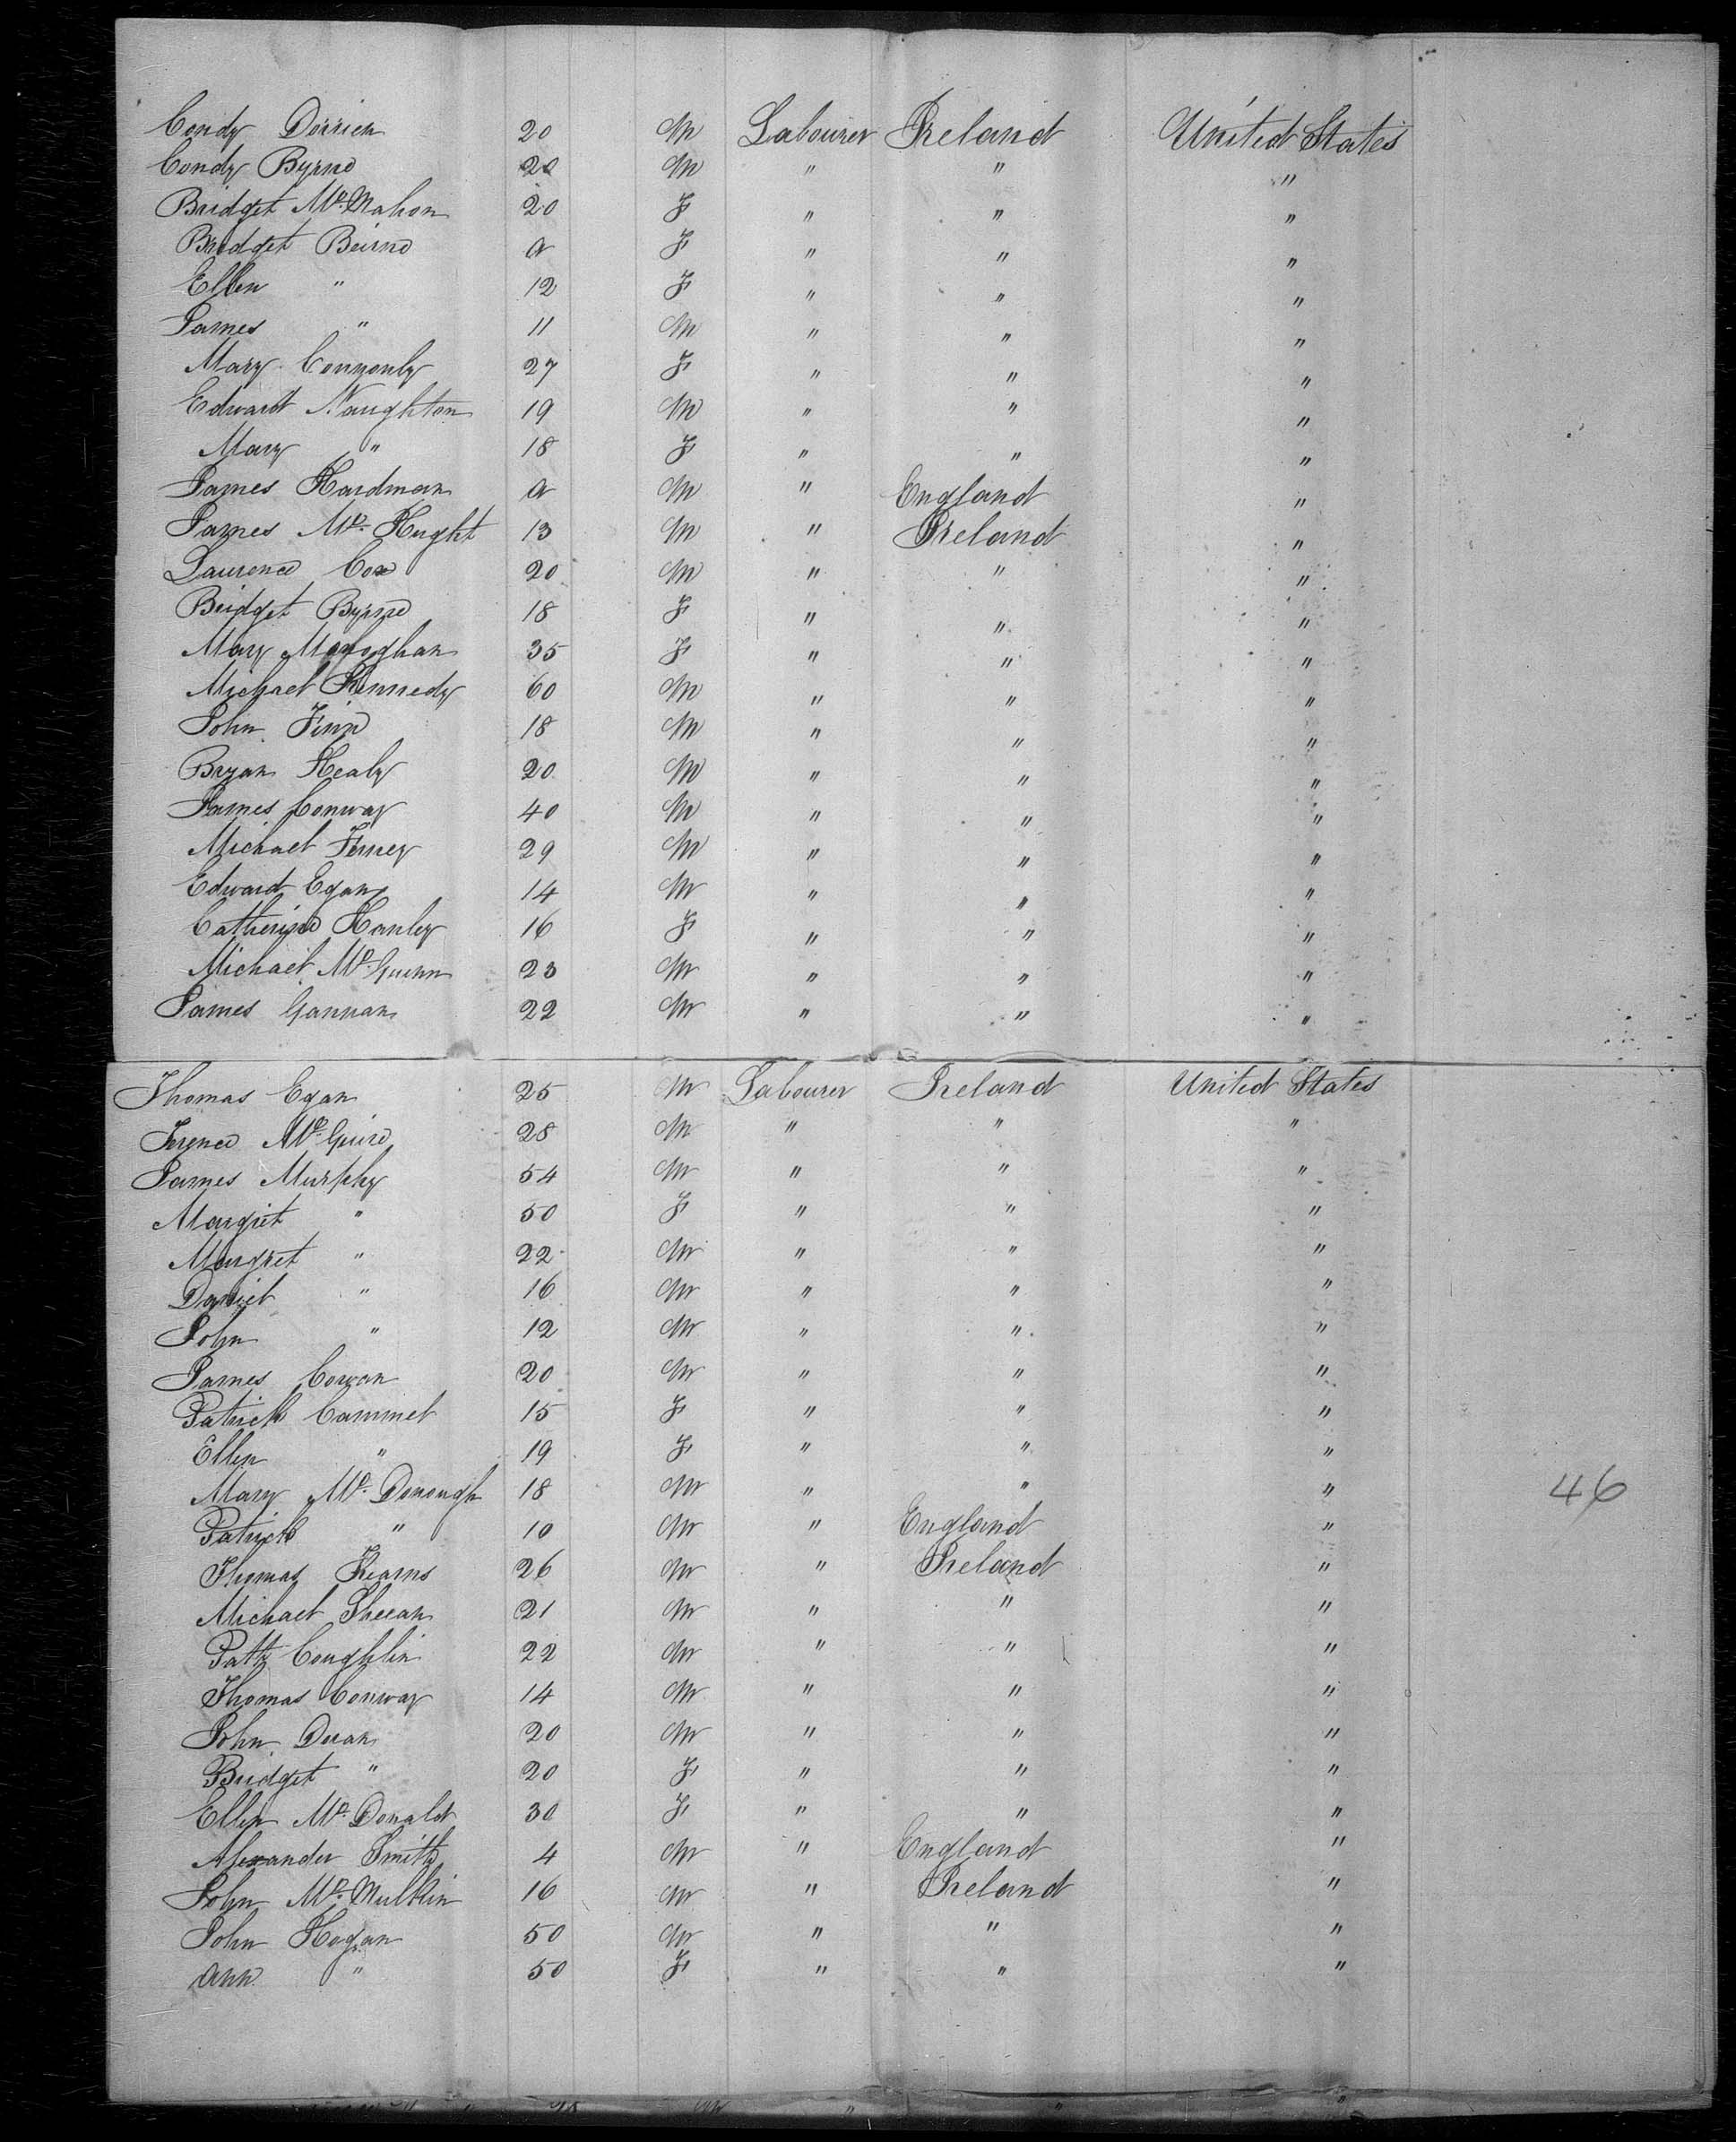 Condy Derrick 20 M Labourer Ireland United States
Condy Byrne 22 M " " "
Bridget Mc. Mahon 20 F " " "
Bridget Beirne a F " " "
Ellen " 12 F " " "
James " 11 M " " "
Mary Connonly 27 F " " "
Edward Naughton 19 M " " "
Mary " 18 F " " "
James Hardman a M " England "
James Mc. Hught 13 M " Ireland "
Laurence Cox 20 M " " "
Bridget Byrne 18 F " " "
Mary Monoghan 35 F " " "
Michael Kennedy 60 M " " "
John Finn 18 M " " "
Bryan Healy 20 M " " "
James Conway 40 M " " "
Michael 29 M " " "
Edward Egan 14 M " " "
Catherine Hanley 16 F " " "
Michael Mc. Guinn 23 M " " "
James Gannan 22 M " " "
Thomas Egan 25 M Labourer Ireland United States
Mc. Guire 28 M " " "
James Murphy 54 M " " "
Margret " 50 F " " "
Margret " 22 M " " "
Daniel " 16 M " " "
John " 12 M " " "
James Cowan 20 M " " "
Patrick Cammel 15 F " " "
Ellen " 19 F " " "
Mary Mc. Donough 18 M " " " 46
Patrick " 10 M " England "
Thomas Kearns 26 M " Ireland "
Michael Sheean 21 M " " "
Patt Coughlin 22 M " " "
Thomas Conway 14 M " " "
John Doran 20 M " " "
Bridget " 20 F " " "
Ellen Mc. Donald 30 F " " "
Alexander Smith 4 M " England "
John Mc. Mulkin 16 M " Ireland "
John Hogan 50 M " " "
Ann " 50 F " " "